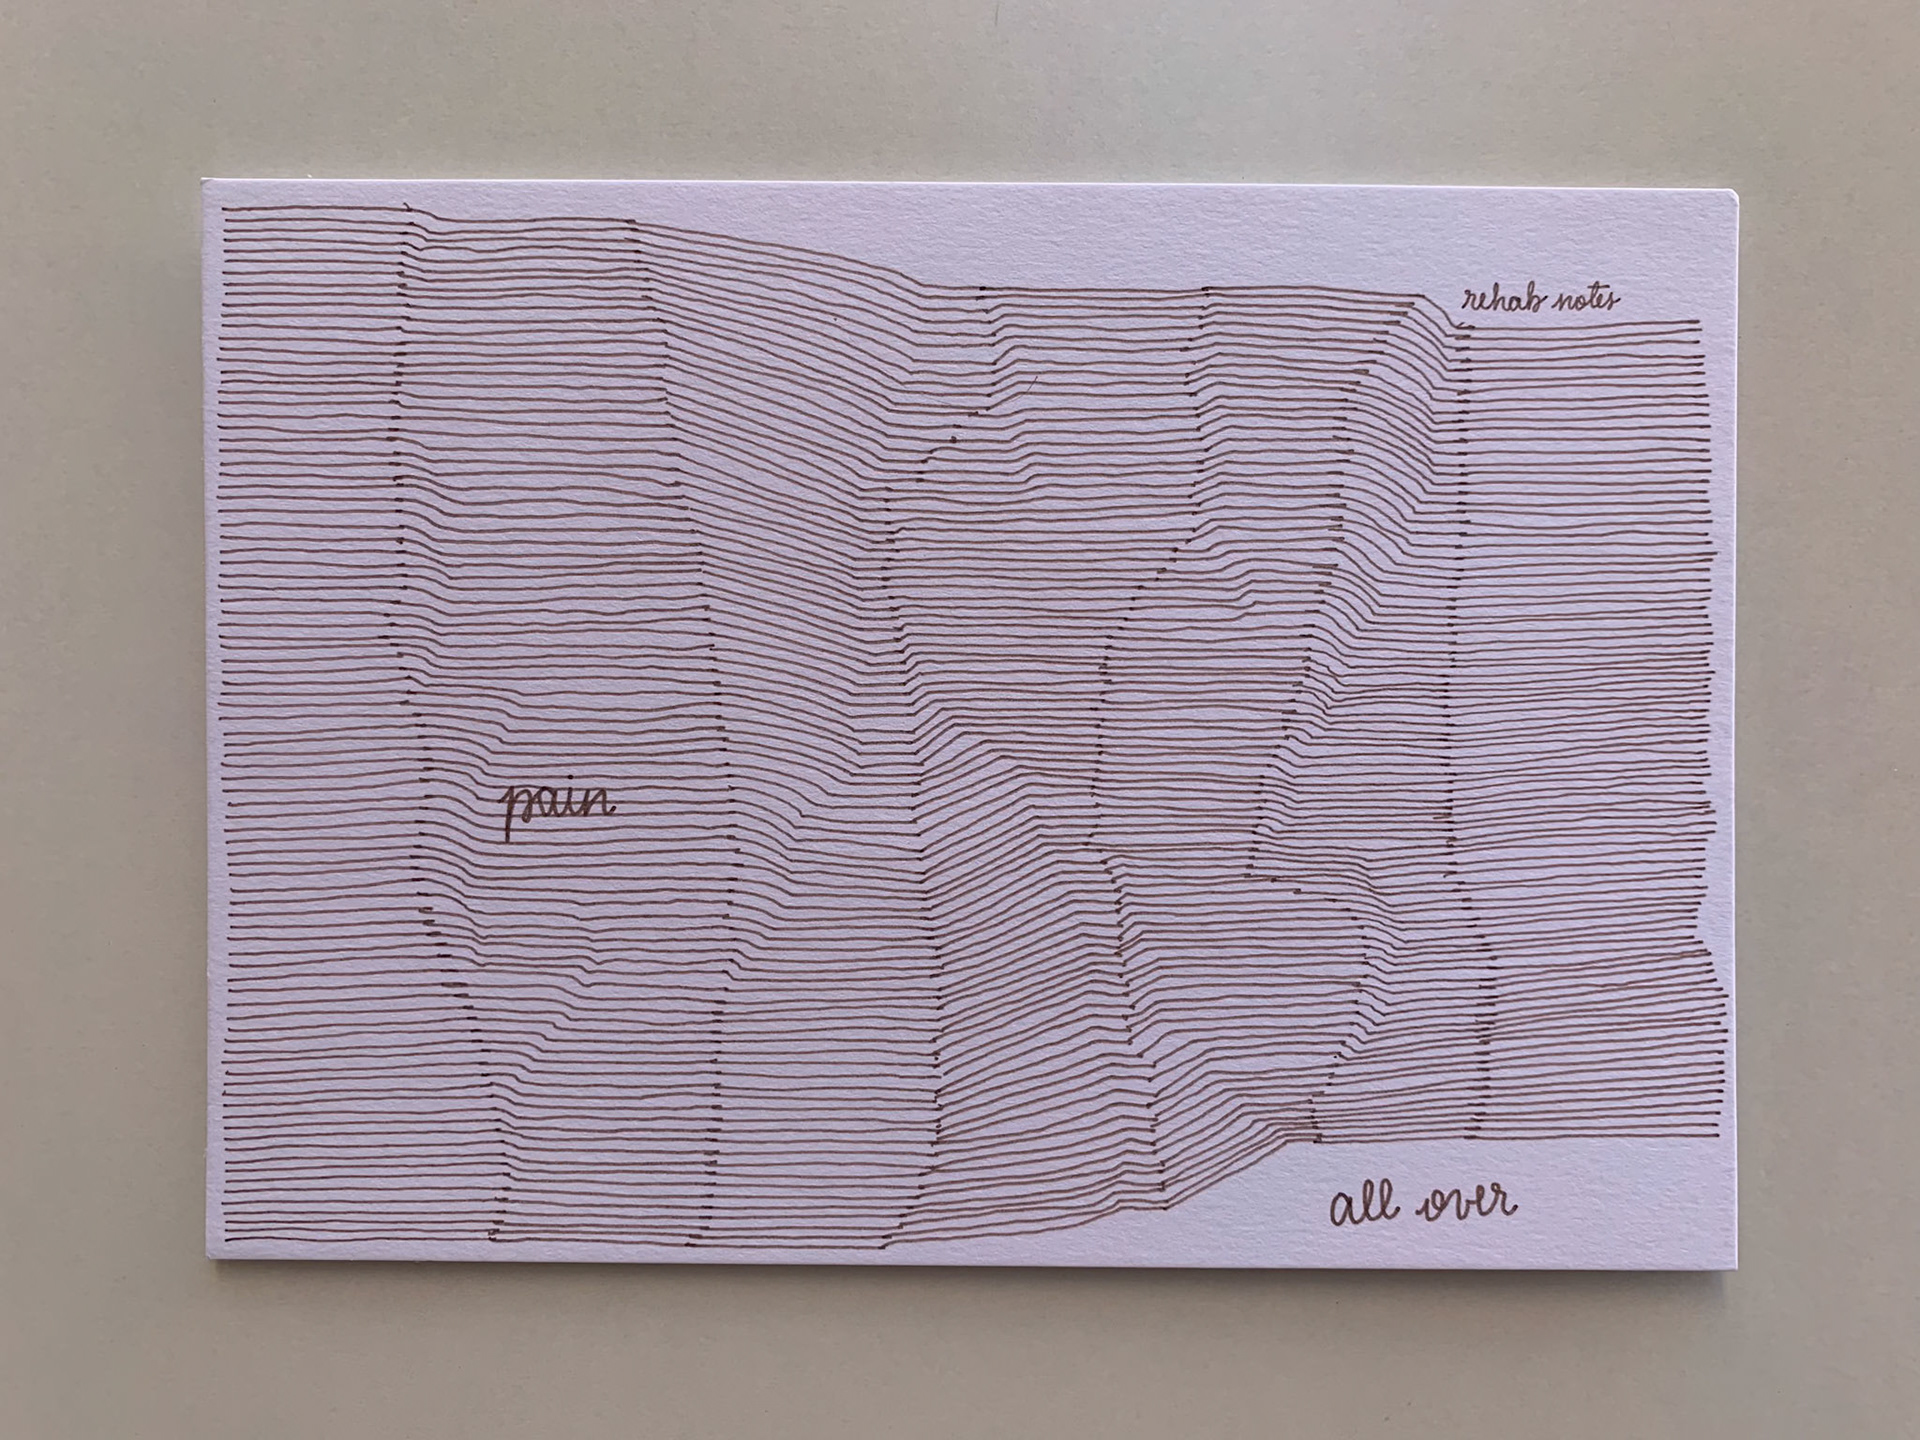 rehab notes
pain
all over